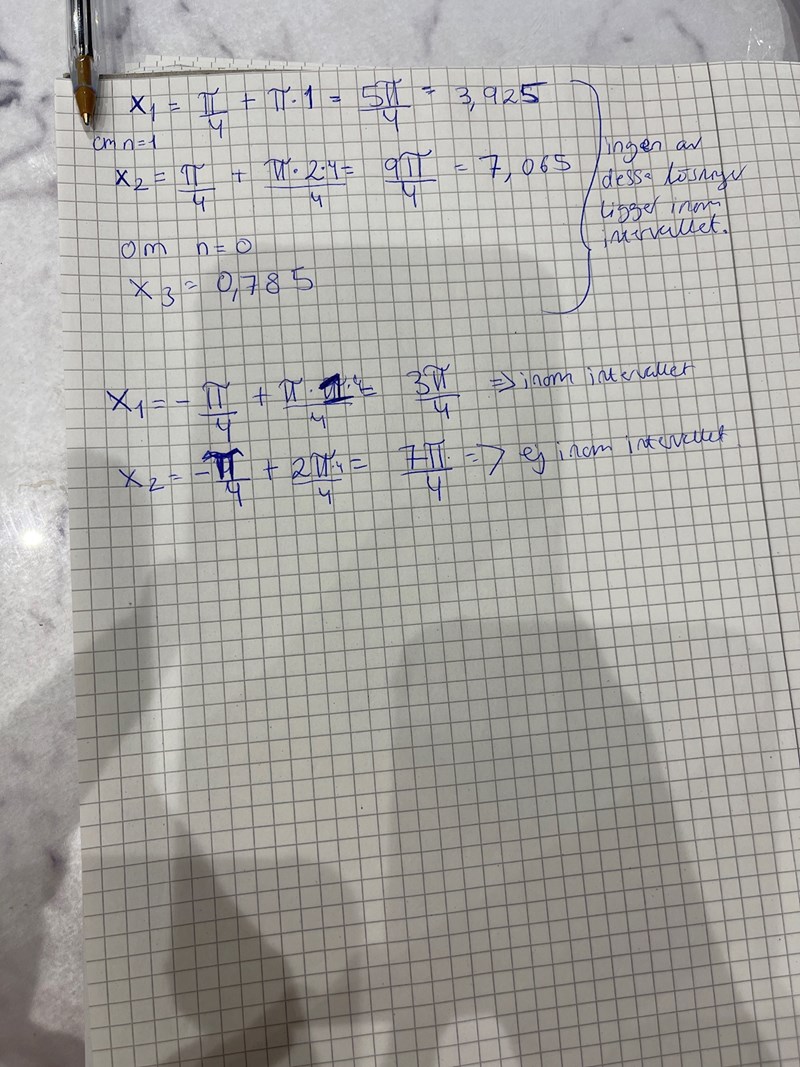 x₁ = π/4 + π·1 = 5π/4 = 3,925
om n=1
x₂ = π/4 + π·2·4/4 = 9π/4 = 7,065
ingen av
dessa lösningar
ligger inom
intervallet.
om n=0
x₃ = 0,785
x₁ = -π/4 + π·1·4/4 = 3π/4 => inom intervallet
x₂ = -π/4 + 2π·4/4 = 7π/4 => ej inom intervallet